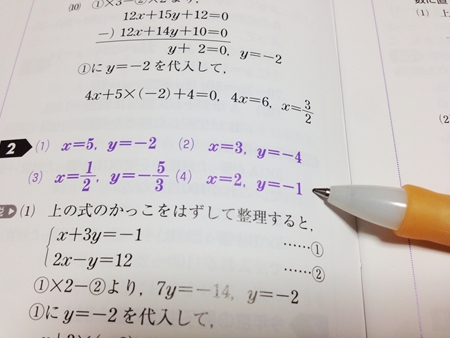 ⑽ ①×3−②×2より，
12x+15y+12=0
−) 12x+14y+10=0
y+ 2=0, y=−2
①にy=−2を代入して，
4x+5×(−2)+4=0, 4x=6, x=3/2
2 (1) x=5, y=−2 (2) x=3, y=−4
(3) x=1/2, y=−5/3 (4) x=2, y=−1
(1) 上の式のかっこをはずして整理すると，
x+3y=−1 ……①
2x−y=12 ……②
①×2−②より，7y=−14, y=−2
①にy=−2を代入して，
(1)
(2)